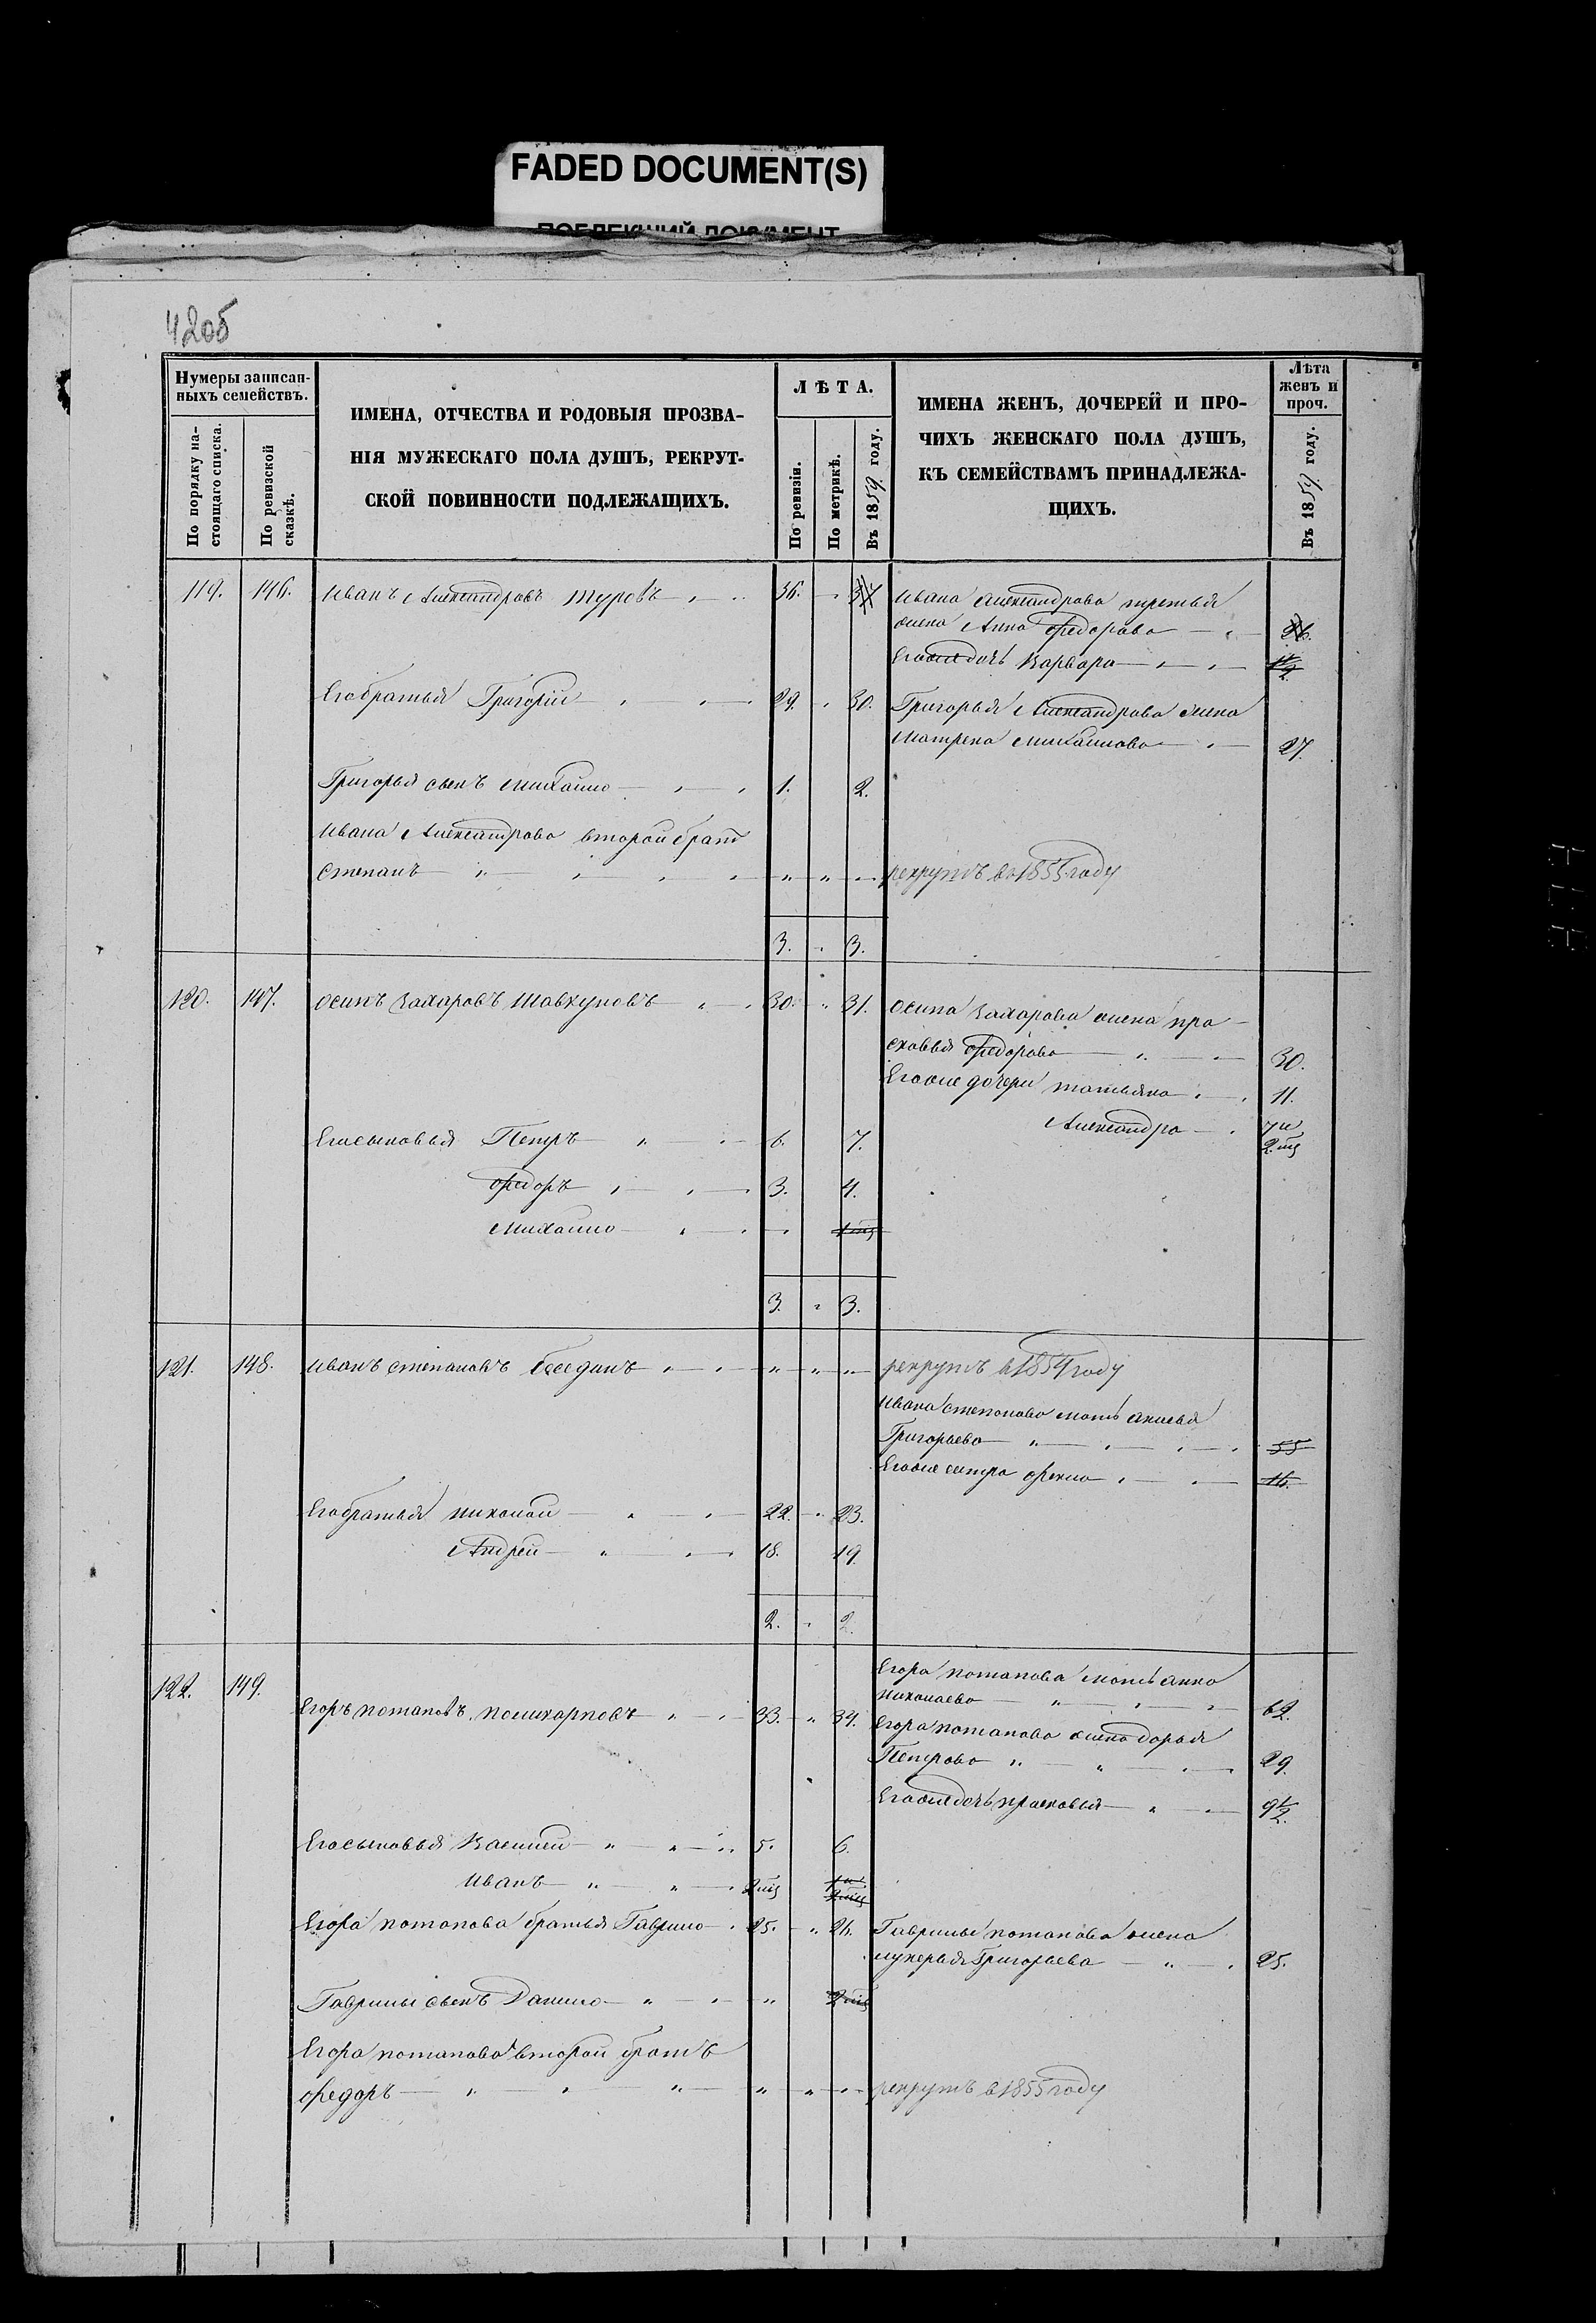 FADED DOCUMENT(S)
ПОБЛЕКШИЙ ДОКУМЕНТ
4205
Нумеры записан-
ныхъ семействъ.
По порядку на-
стоящаго списка.
По ревизской
сказкѣ.
ИМЕНА, ОТЧЕСТВА И РОДОВЫЯ ПРОЗВА-
НІЯ МУЖЕСКАГО ПОЛА ДУШЪ, РЕКРУТ-
СКОЙ ПОВИННОСТИ ПОДЛЕЖАЩИХЪ.
ЛѢТА.
По ревизіи.
По метрикѣ.
Въ 1859 году.
ИМЕНА ЖЕНЪ, ДОЧЕРЕЙ И ПРО-
ЧИХЪ ЖЕНСКАГО ПОЛА ДУШЪ,
КЪ СЕМЕЙСТВАМЪ ПРИНАДЛЕЖА-
ЩИХЪ.
Лѣта
женъ и
проч.
Въ 1859 году.
119. 146. Иванъ Александровъ Туровъ 36. 37 Ивана Александрова третья
жена Анна Федорова 36.
Егоже дочь Варвара
Его братья Григорій 29. 30. Григорья Александрова жена
Матрена Михайлова 27.
Григорья сынъ Михайло 1. 2.
Ивана Александрова второй братъ
Степанъ рекрутъ в 1855 году
3. 3.
120. 147. Осипъ Захаровъ Шавкуновъ 30. 31. Осипа Захарова жена Пра-
сковья Федорова 30.
Егоже дочери Татьяна 11.
Александра 7 и
2 мц
Его сыновья Петръ 6. 7.
Федоръ 3. 4.
Михайло
3. 3.
121. 148. Иванъ Степановъ Беединъ рекрутъ в 1854 году
Ивана Степанова мать Акилья
Григорьева 55
Егоже сестра Фекла 16.
Его братья Николай 22. 23.
Андрей 18. 19.
2. 2.
122. 149. Егора Потапова мать Анна
Николаева 62.
Егоръ Потаповъ Поликарповъ 33. 34. Егора Потапова жена Дарья
Петрова 29.
Егоже дочь Прасковья 9½.
Его сыновья Василей 5. 6.
Иванъ 2 мц
Егора Потапова братья Гаврило 25. 26. Гаврилы Потапова жена
Лукерья Григорьева 25.
Гаврилы сынъ Данило 2 мц
Егора Потапова второй братъ
Федоръ рекрутъ в 1855 году